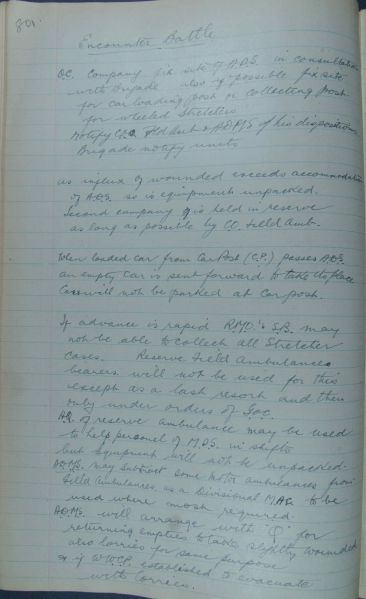 801.
Encounter Battle
O.C. Company fix site of A.D.S. in consultation
with Brigade also if possible fix site
for car loading post or collecting post
for wheeled stretchers
Notify C.O. Fld Amb & A.D.M.S. of his dispositions
Brigade notify units
as influx of wounded exceeds accommodation
of A.D.S. so is equipment unpacked.
Second company is held in reserve
as long as possible by CO. Field Amb.
When loaded car from Car Post (C.P.) passes A.D.S.
an empty car is sent forward to take its place
Cars will not be parked at car post.
If advance is rapid R.M.O.'s S.B. may
not be able to collect all stretcher
cases. Reserve Field Ambulances
bearers will not be used for this
except as a last resort and then
only under orders of
of reserve ambulance may be used
to help personnel of M.D.S. in shifts
but equipment will not be unpacked.
A.D.M.S. may subtract some motor ambulances from
Field Ambulances as a Divisional M.A.C. to be
used where most required
A.D.M.S. will arrange with "Q" for
returning empties to take slightly wounded
also lorries for same purpose
if W.W.C.P. established to evacuate
with lorries.